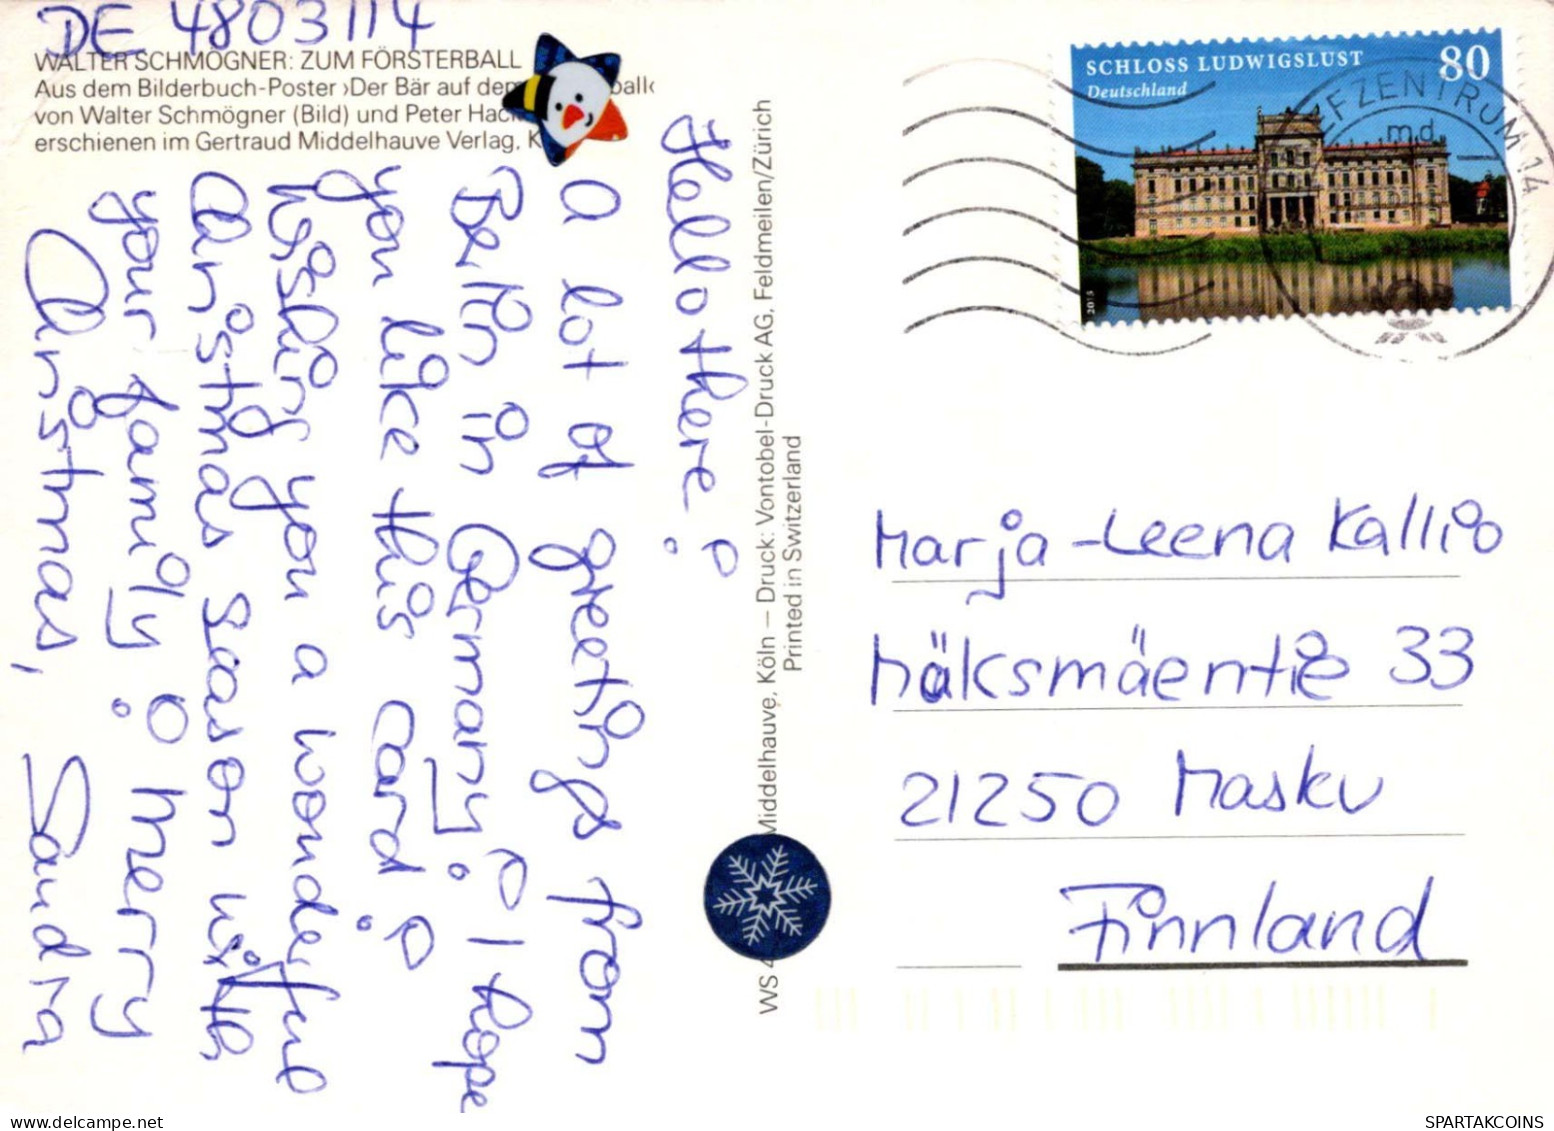 DE 4803114
WALTER SCHMÖGNER: ZUM FÖRSTERBALL
Aus dem Bilderbuch-Poster ›Der Bär auf dem ball‹
von Walter Schmögner (Bild) und Peter Hac
erschienen im Gertraud Middelhauve Verlag, K
Hello there!
A lot of greetings from
Berlin in Germany! I hope
you like this card!
Wishing you a wonderful
Christmas season with
your family! Merry
Christmas, Sandra
WS 4 Middelhauve, Köln — Druck: Vontobel-Druck AG, Feldmeilen/Zürich
Printed in Switzerland
SCHLOSS LUDWIGSLUST 80
Deutschland
2015
FZENTRUM 14
md
Marja-Leena Kallio
Häksmäentie 33
21250 Masku
Finnland
SPARTAKCOINS
www.delcampe.net